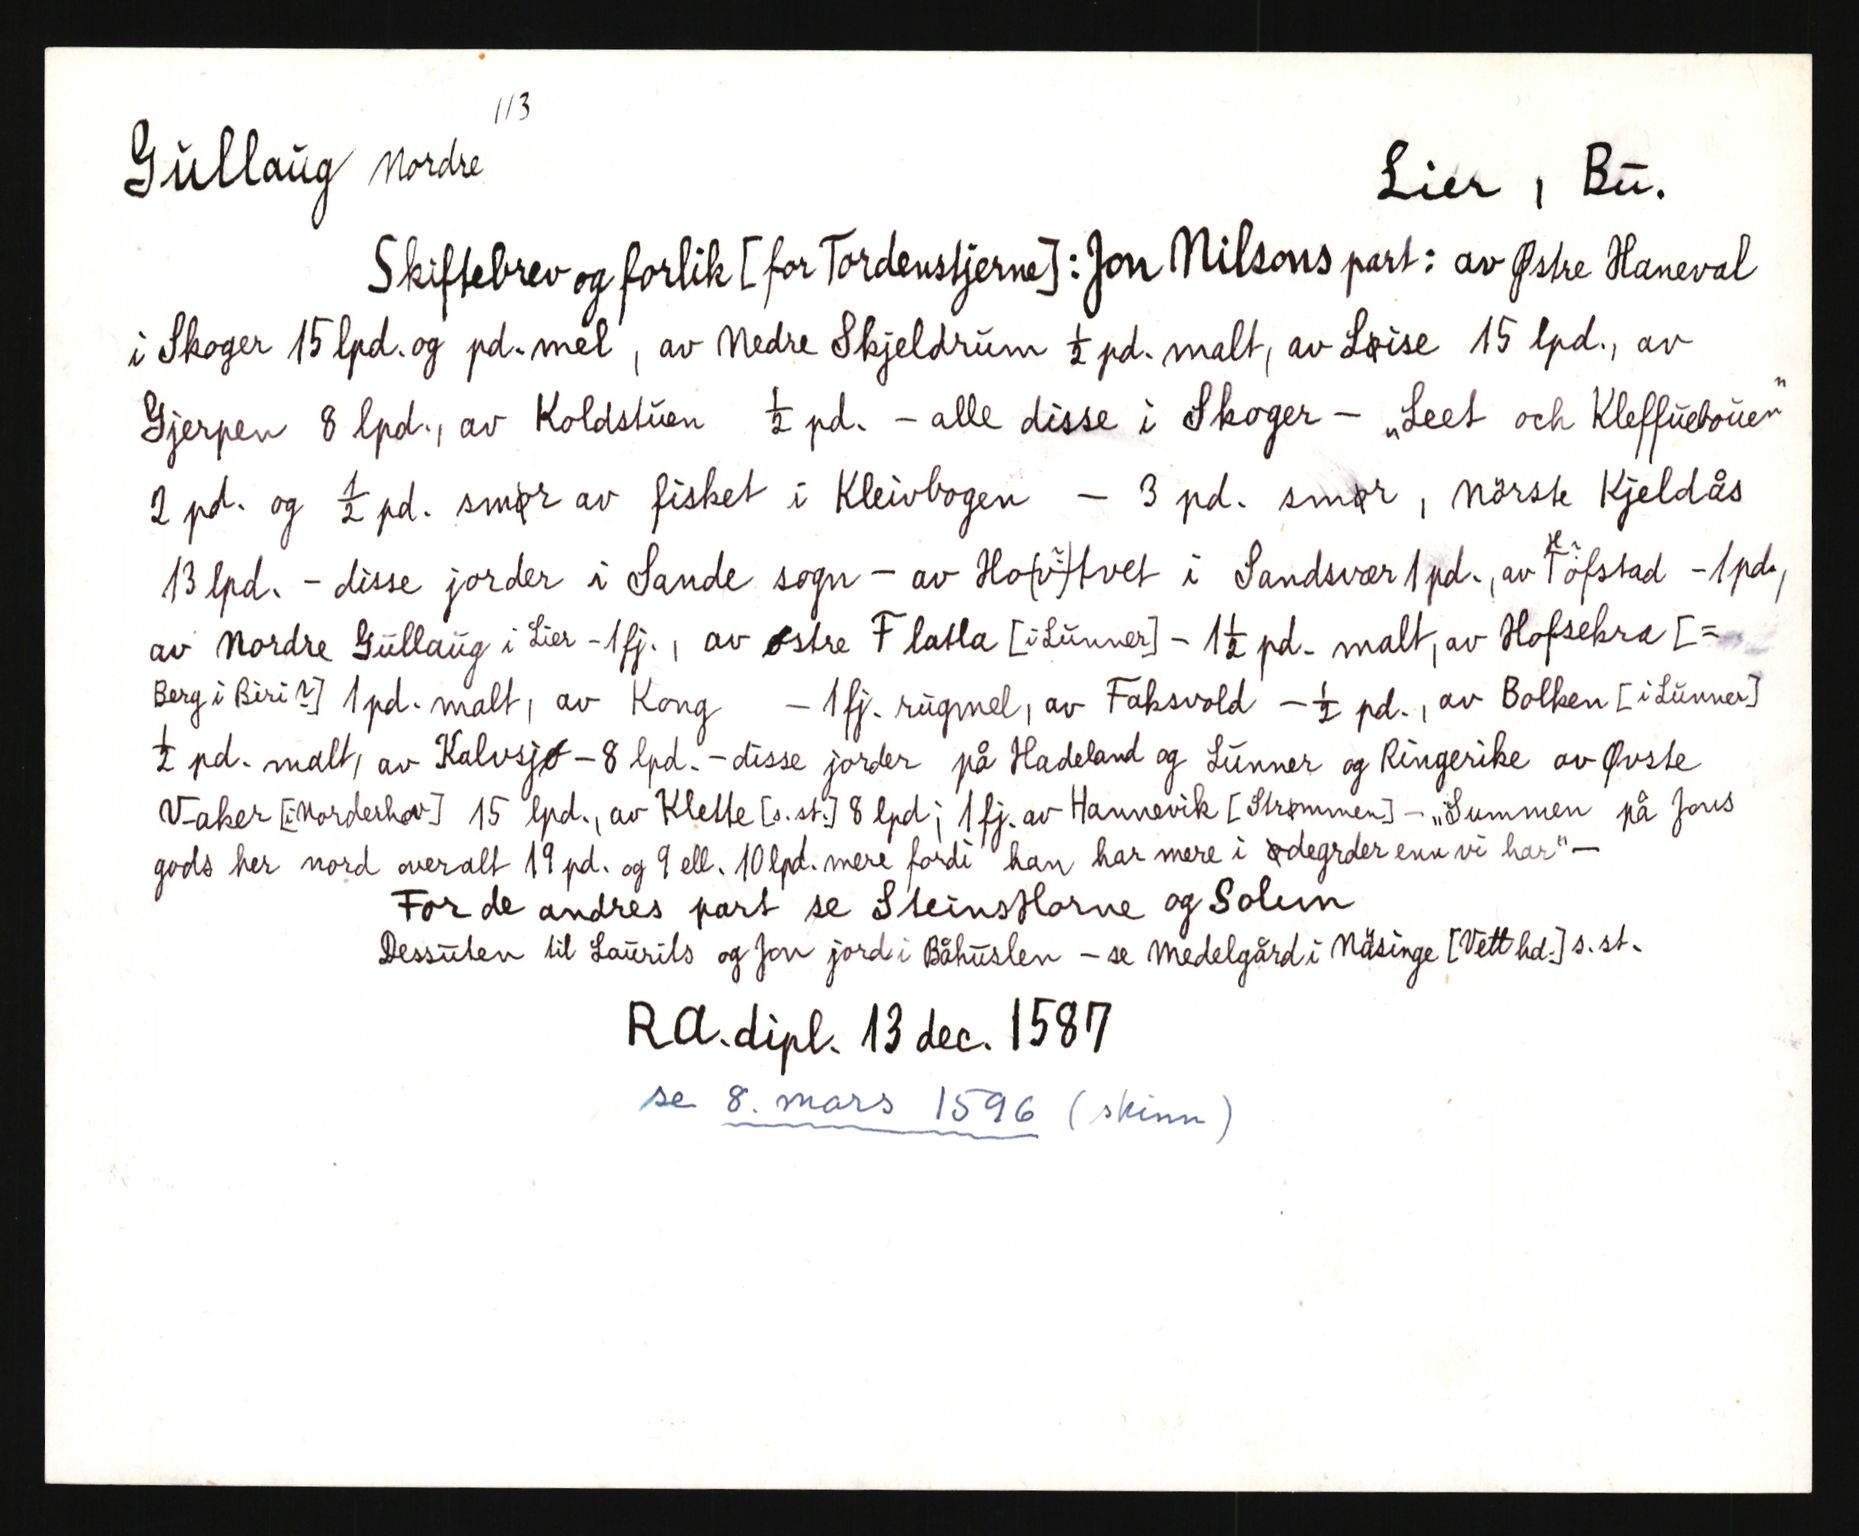 113
Gullaug Nordre
Lier, Bu.
Skiftebrev og forlik [for Tordenstjerne]: Jon Nilsons part: av Østre Haneval
i Skoger 15 lpd. og pd. mel, av Nedre Skjeldrum ½ pd. malt, av Løise 15 lpd., av
Gjerpen 8 lpd., av Koldstuen ½ pd. - alle disse i Skoger - „Leet och Kleffuebouen"
2 pd. og ½ pd. smør av fisket i Kleivbogen - 3 pd. smør, Nörste Kjeldås
13 lpd. - disse jorder i Sande sogn - av Ho(v?)tvet i Sandsvær 1 pd., av Töfstad - 1 pd.,
av Nordre Gullaug i Lier - 1 fj., av østre Flatla [i Lunner] - 1½ pd. malt, av Hofsekra [=
Berg i Biri?] 1 pd. malt, av Kong - 1 fj. rugmel, av Faksvold - ½ pd., av Bolken [i Lunner]
½ pd. malt, av Kalvsjø - 8 lpd. - disse jorder på Hadeland og Lunner og Ringerike av Øvste
V-aker [i Norderhov] 15 lpd., av Klette [s. st.] 8 lpd; 1 fj. av Hannevik [Strømmen] - „Summen på Jons
gods her nord overalt 19 pd. og 9 ell. 10 lpd. mere fordi han har mere i ødegrder enn vi har" -
For de andres part se SteinsHorne og Solum
Dessuten til Laurits og Jon jord i Båhuslen - se Medelgård i Näsinge [Vett hd.] s. st.
RA. dipl. 13 dec. 1587
se 8. mars 1596 (skinn)